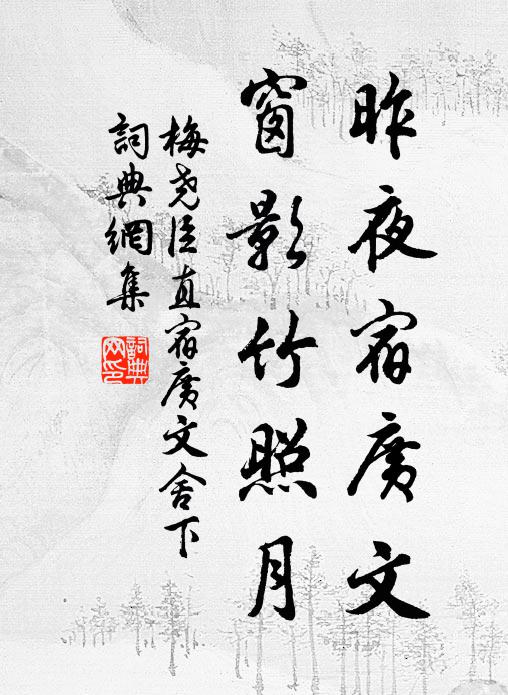 昨夜宿廣文
窗影竹照月
梅堯臣直宿廣文舍下
詞典網集
詞典網印